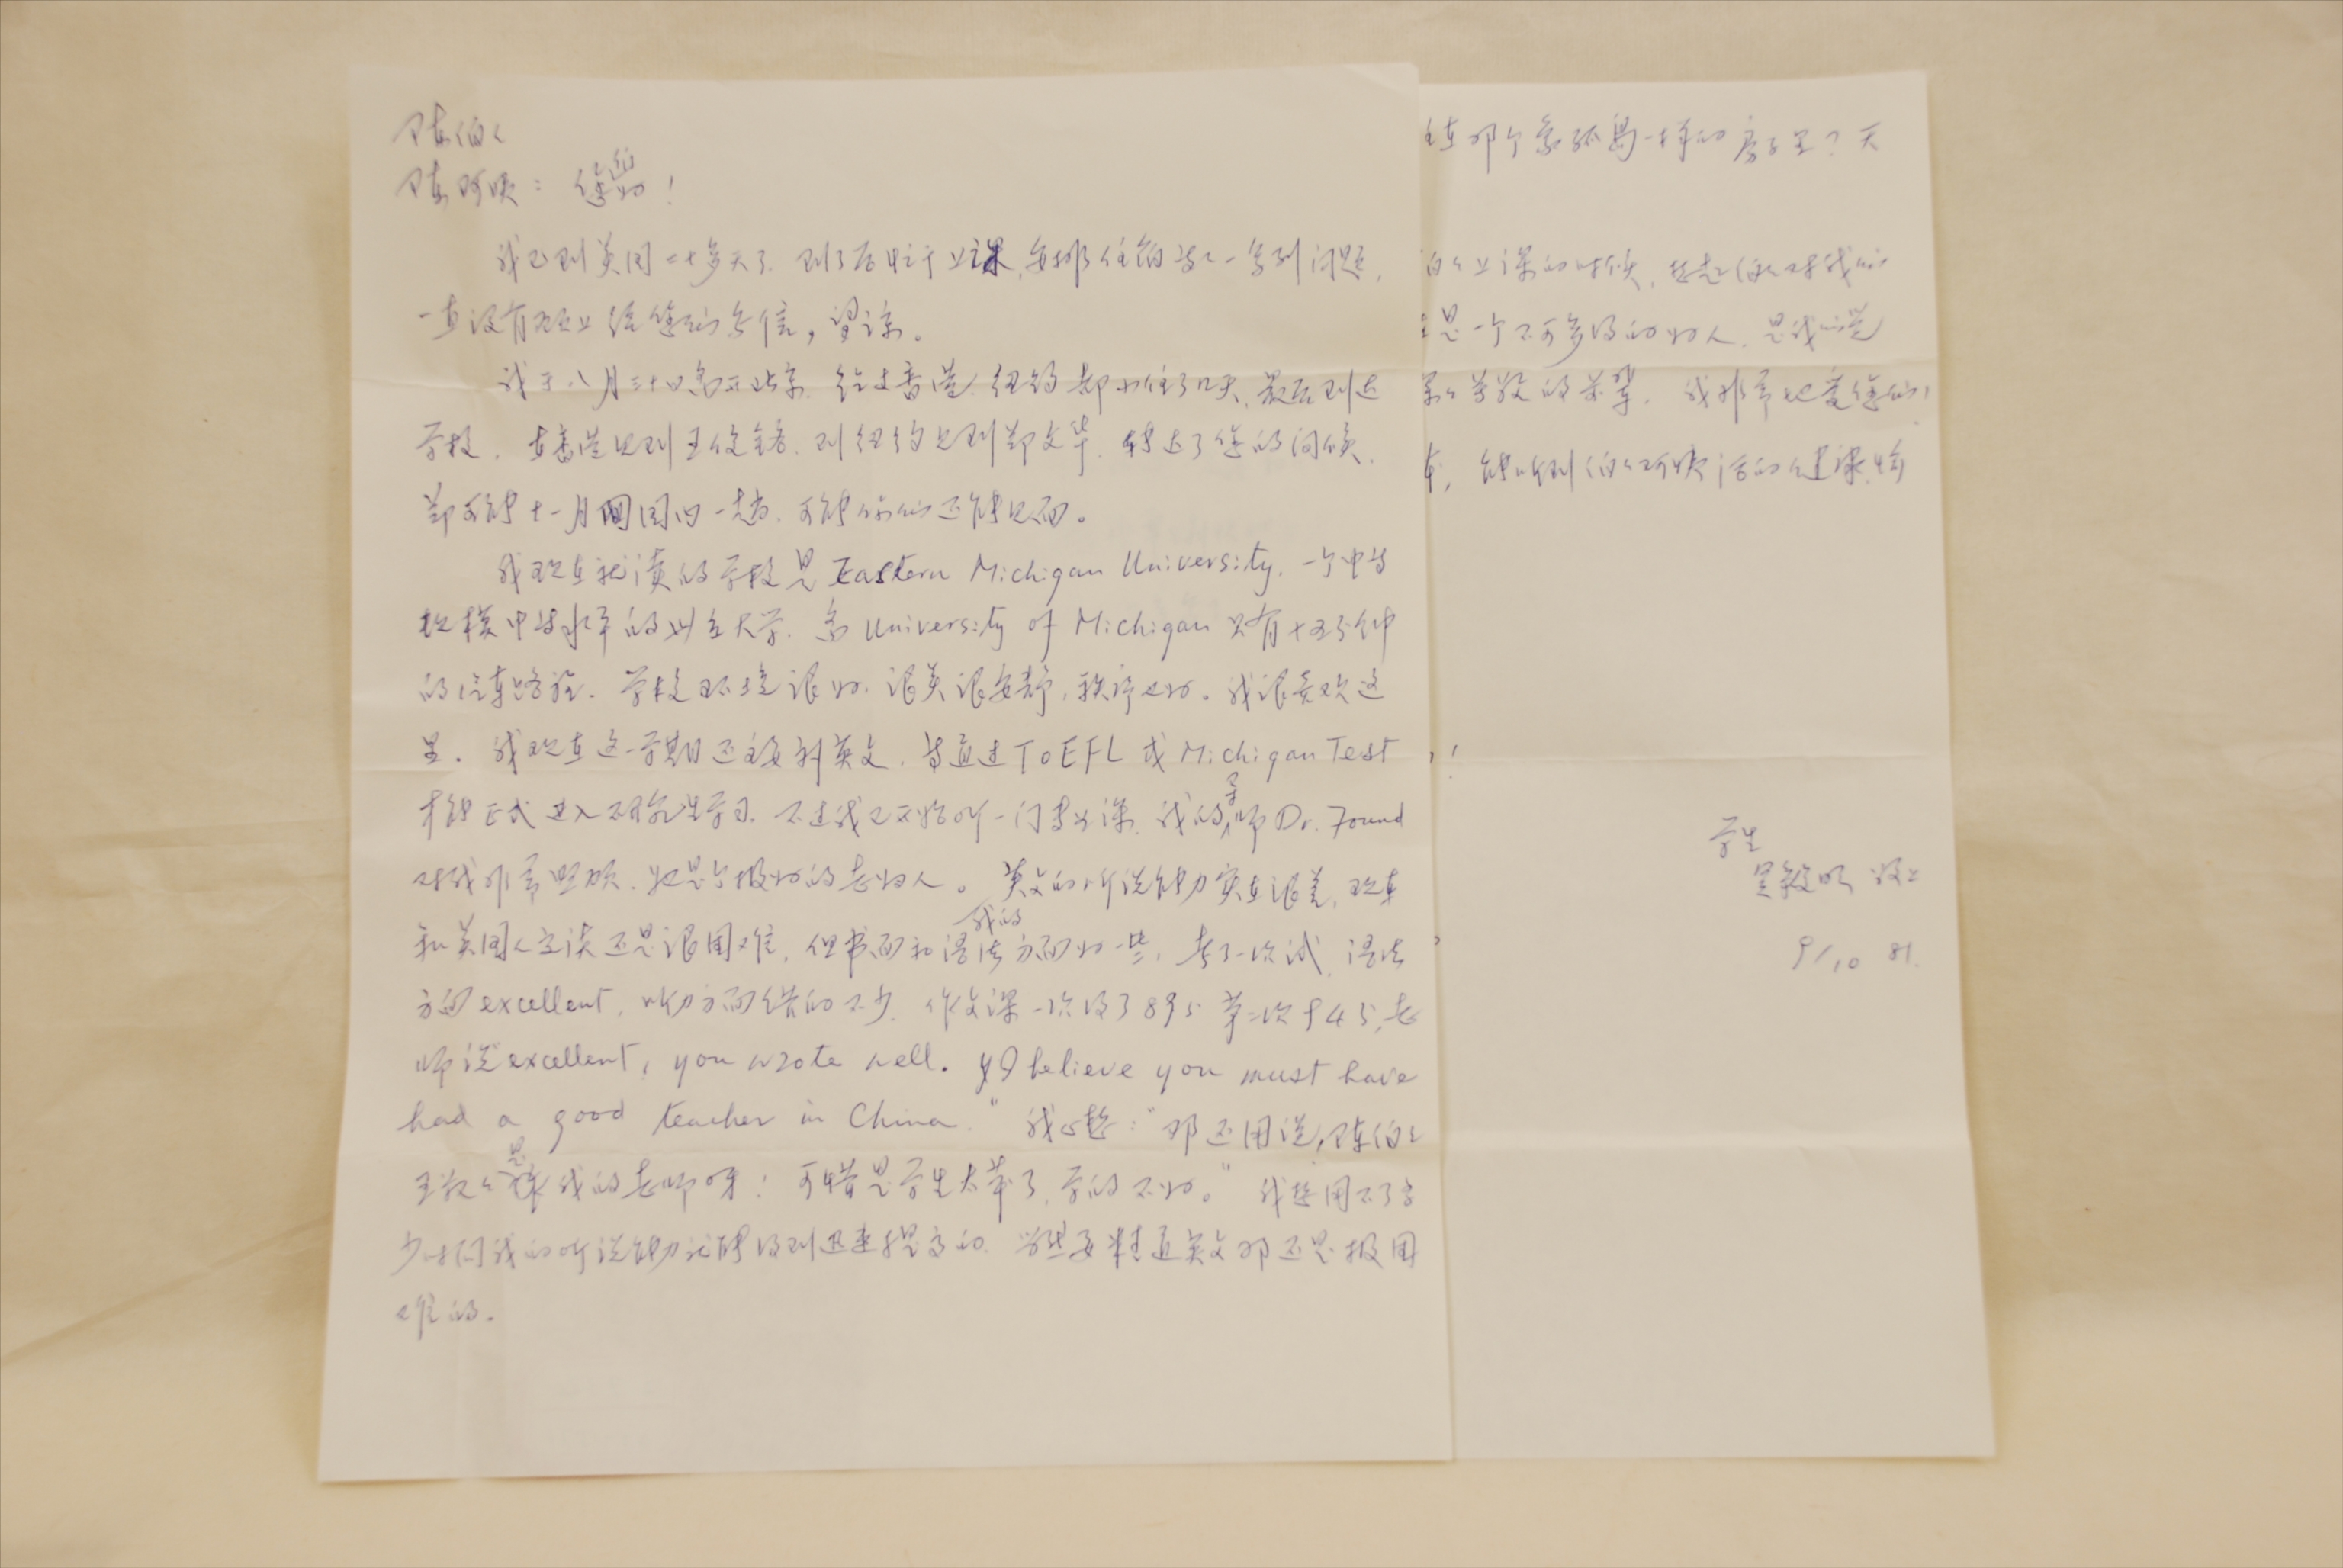 陈伯伯
陈阿姨：您们好！
我已到美国二十多天了.到了后由于上课,安排住宿等一系列问题,
一直没有马上给您们写信，望谅。
我于八月三十日离开北京.途经香港.纽约都小住了几天,最后到达
学校.在香港见到王俊铭.到纽约见到郑文华.转达了您的问候.
郑可能十一月回国一趟.可能你们还能见面。
我现在就读的学校是Eastern Michigan University.一个中等
规模中等水平的州立大学.离University of Michigan只有十五分钟
的汽车路程.学校环境很好.很美很安静,秩序也好。我很喜欢这
里.我现在这一学期还主要补英文.等通过TOEFL或Michigan Test
才能正式进入研究生学习.不过我已开始听一门专业课.我的导师Dr. Found
对我非常照顾.她是个极好的老好人。英文的听说能力实在很差,现在
和美国人交谈还是很困难,但书面和语法我的方面好一些,考了一次试,语法
方面excellent,听力方面错的不少.作文课一次得了89分第二次94分,老
师说excellent, you wrote well. I believe you must have
had a good teacher in China." 我心想:"那还用说,陈伯伯
是我的老师呀!可惜是学生太笨了,学的不好。"我想用不了多
少时间我的听说能力就能得到迅速提高的.当然要精通英文那还是极困
难的.
在那个象孤岛一样的房子里?天
伯伯上课的时候,想起伯伯对我的
是一个不可多得的好人.是我
尊敬的长辈.我非常地爱您们,
能听到伯伯阿姨
!
学生
敬上
9/10 81.